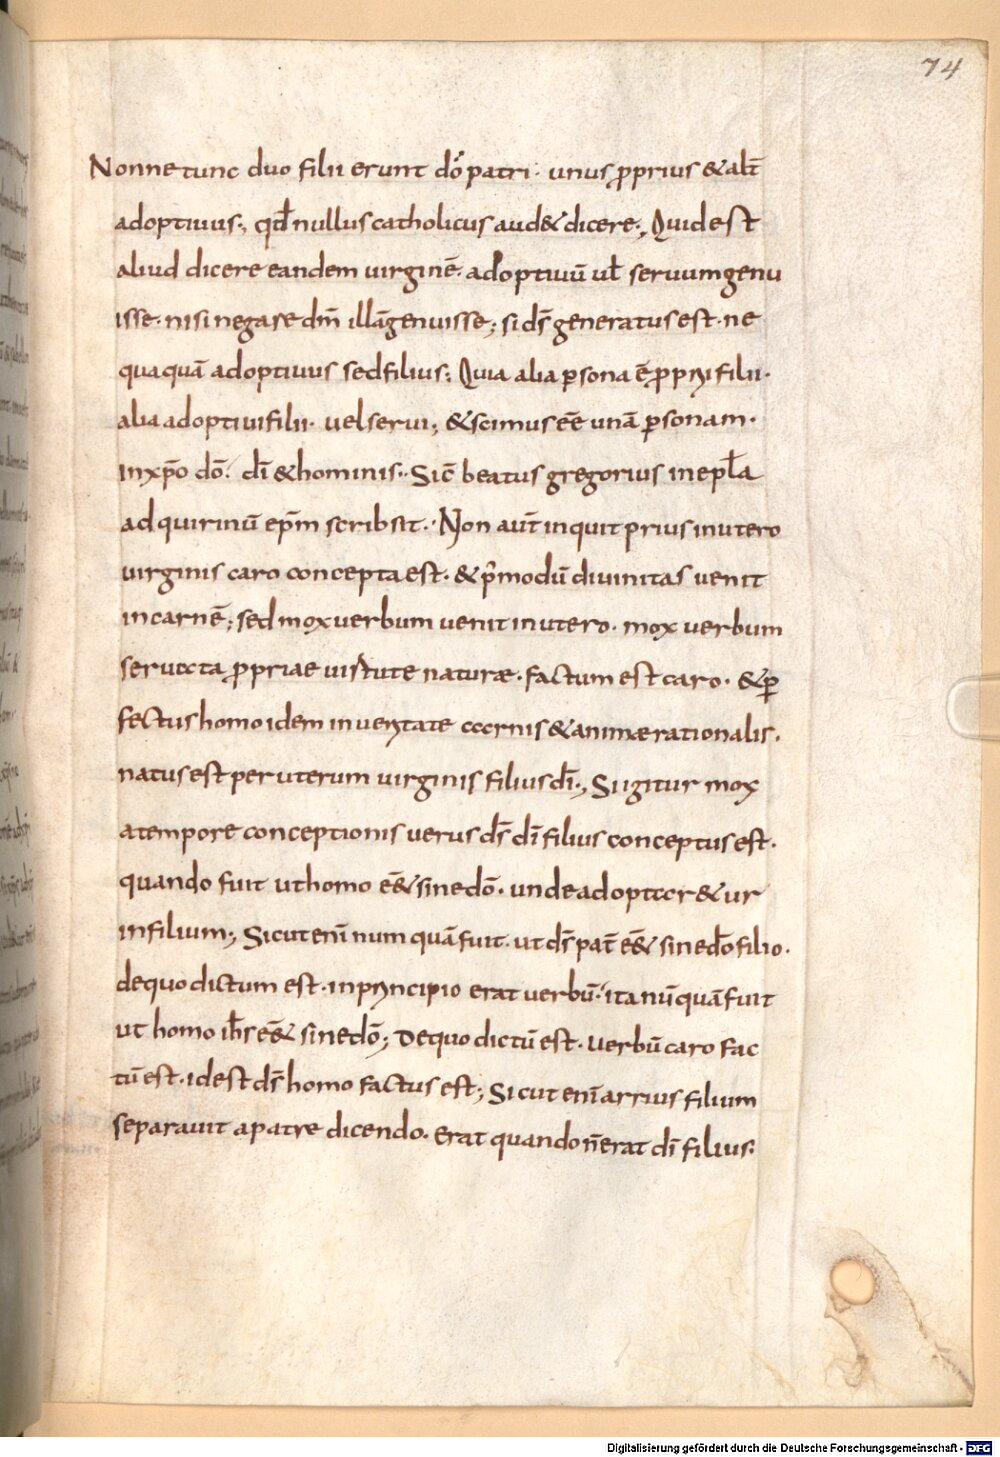 74
Nonne tunc duo filii erunt dō patri · unus ꝓprius & alt̄
adoptiuus ·, qđ nullus catholicus aud& dicere ·, Quid est
aliud dicere eandem uirginē · adoptiuū uł seruum genu
isse · nisi negare dm̄ illā genuisse ; si ds̄ generatus est · ne
quaquā adoptiuus sed filius ; Quia alia ꝑsona ē ꝓprii filii ·
alia adoptiui filii · uel serui ; & scimus eē unā ꝑsonam ·
in xp̄o dō · dī & hominis ·· Sic̄ beatus gregorius in epła
ad quirinū ep̄m scribsit ·· Non aut̄ inquit prius in utero
uirginis caro concepta est · & p̄modū diuinitas uenit
in carnē ; sed mox uerbum uenit in utero · mox uerbum
seruata ꝓpriae uirtute naturæ · factum est caro · & ꝑ
fectus homo idem in ueritate carnis & animæ rationalis ·
natus est per uterum uirginis filius dī ·, Si igitur mox
a tempore conceptionis uerus ds̄ dī filius conceptus est ·
quando fuit ut homo eē& sine dō · unde adoptar&ur
in filium ; Sicut enī numquā fuit · ut ds̄ pat̄ eē& sine dō filio ·
de quo dictum est · in principio erat uerbū · ita nūquā fuit
ut homo ih̄s eē& sine dō ; De quo dictū est · Uerbū caro fac
tū est · id est ds̄ homo factus est ; Sicut enī arrius filium
separauit a patre dicendo · Erat quando n̄ erat dī filius ·
Digitalisierung gefördert durch die Deutsche Forschungsgemeinschaft - DFG